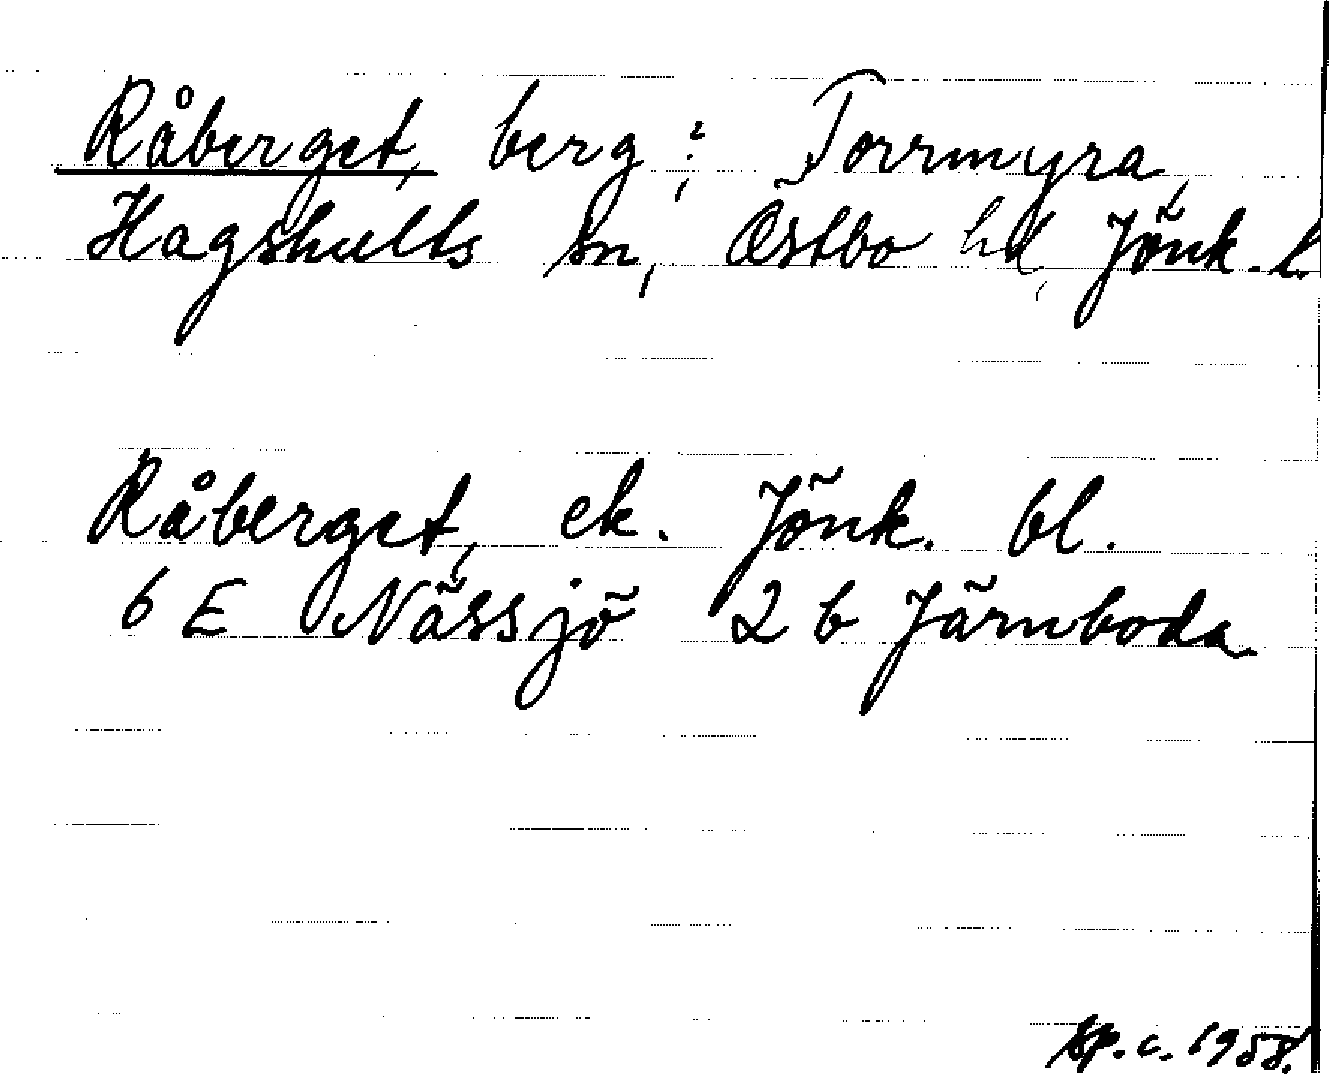 Råberget, berg ?, Torrmyra,
Hagshults sn, Östbo hd, Jönk. l.
Råberget, ek. Jönk. bl.
6 E Nässjö 2 b Järnboda
c. 1958.